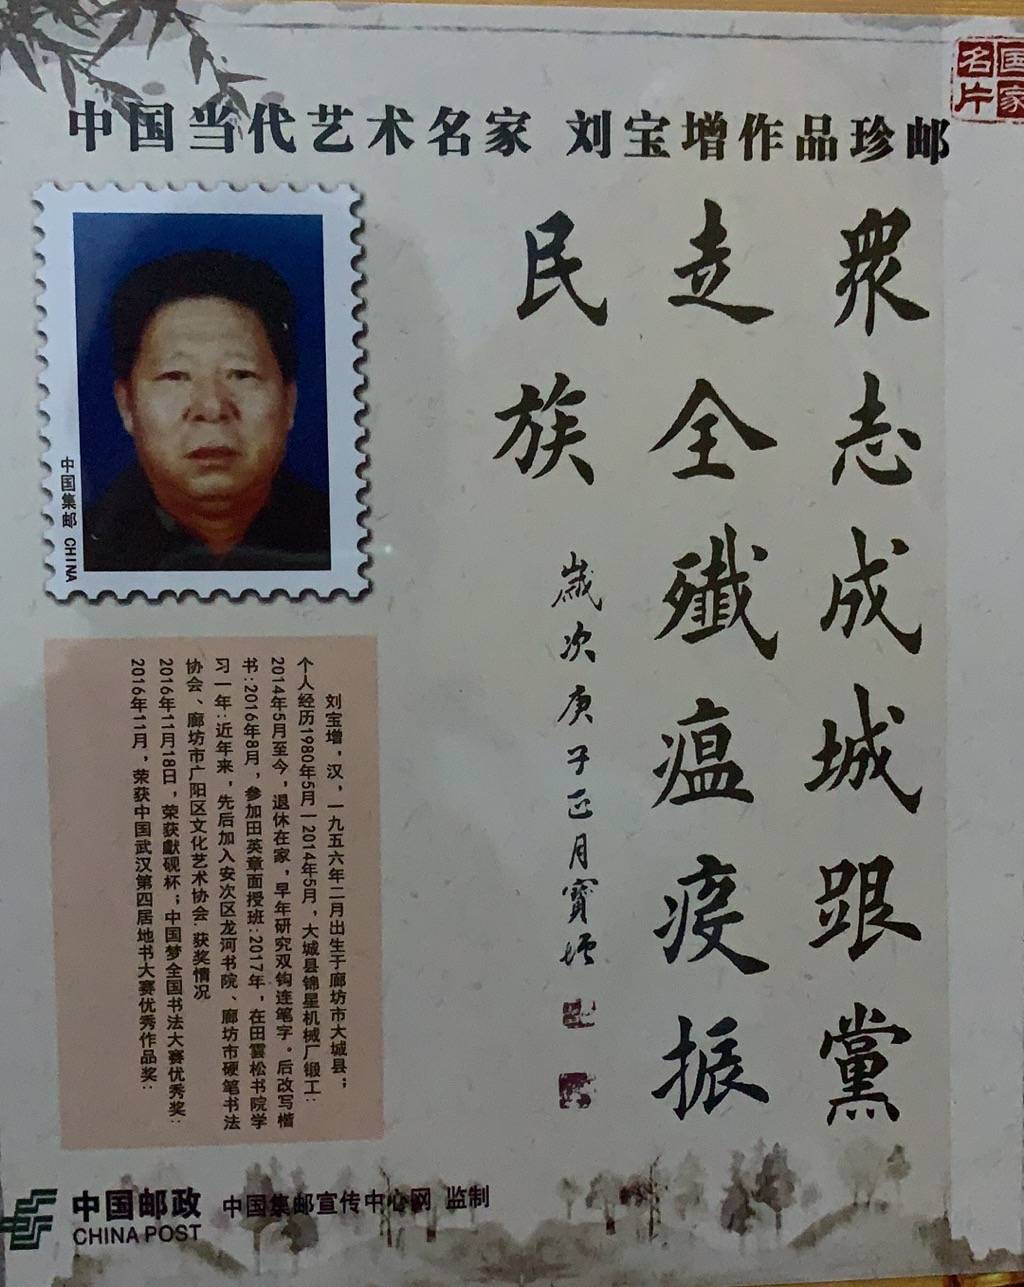 国家名片
中国当代艺术名家 刘宝增作品珍邮
衆志成城跟黨
走全殲瘟疫振
民族
歲次庚子正月寶增
中国集邮 CHINA
刘宝增，汉，一九五六年二月出生于廊坊市大城县；
个人经历1980年5月—2014年5月，大城县锦星机械厂锻工：
2014年5月至今，退休在家，早年研究双钩连笔字。后改写楷
书:2016年8月，参加田英章面授班:2017年，在田雲松书院学
习一年:近年来，先后加入安次区龙河书院、廊坊市硬笔书法
协会、廊坊市广阳区文化艺术协会.获奖情况
2016年11月18日，荣获獻砚杯；中国梦全国书法大赛优秀奖:
2016年11月，荣获中国武汉第四届地书大赛优秀作品奖:
中国邮政
CHINA POST
中国集邮宣传中心网 监制